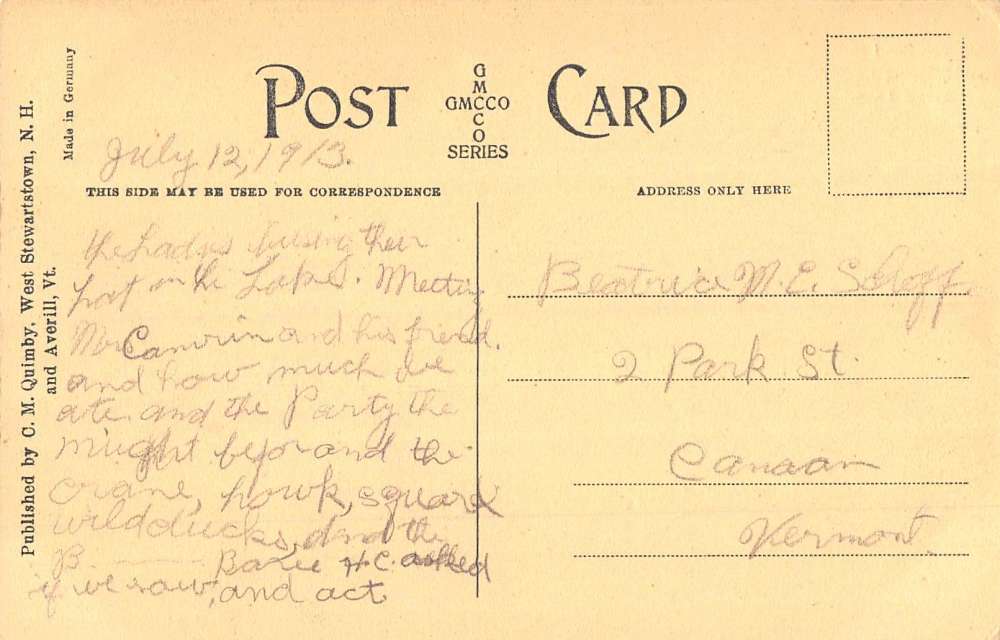 Published by C. M. Quimby, West Stewartstown, N. H.
and Averill, Vt.
Made in Germany
POST CARD
G
M
GMCCO
C
O
SERIES
July 12, 1913.
THIS SIDE MAY BE USED FOR CORRESPONDENCE
ADDRESS ONLY HERE
the Ladies their
hat on the Lake. Meeting
Mr and his friend.
and how much we
ate. and the Party the
might befor and the
crane, howk, squarel
wild ducks, and the
B Baree H.C. asked
if we saw, and act
Beatrice M. E.
2 Park St.
Canaan
Vermont.